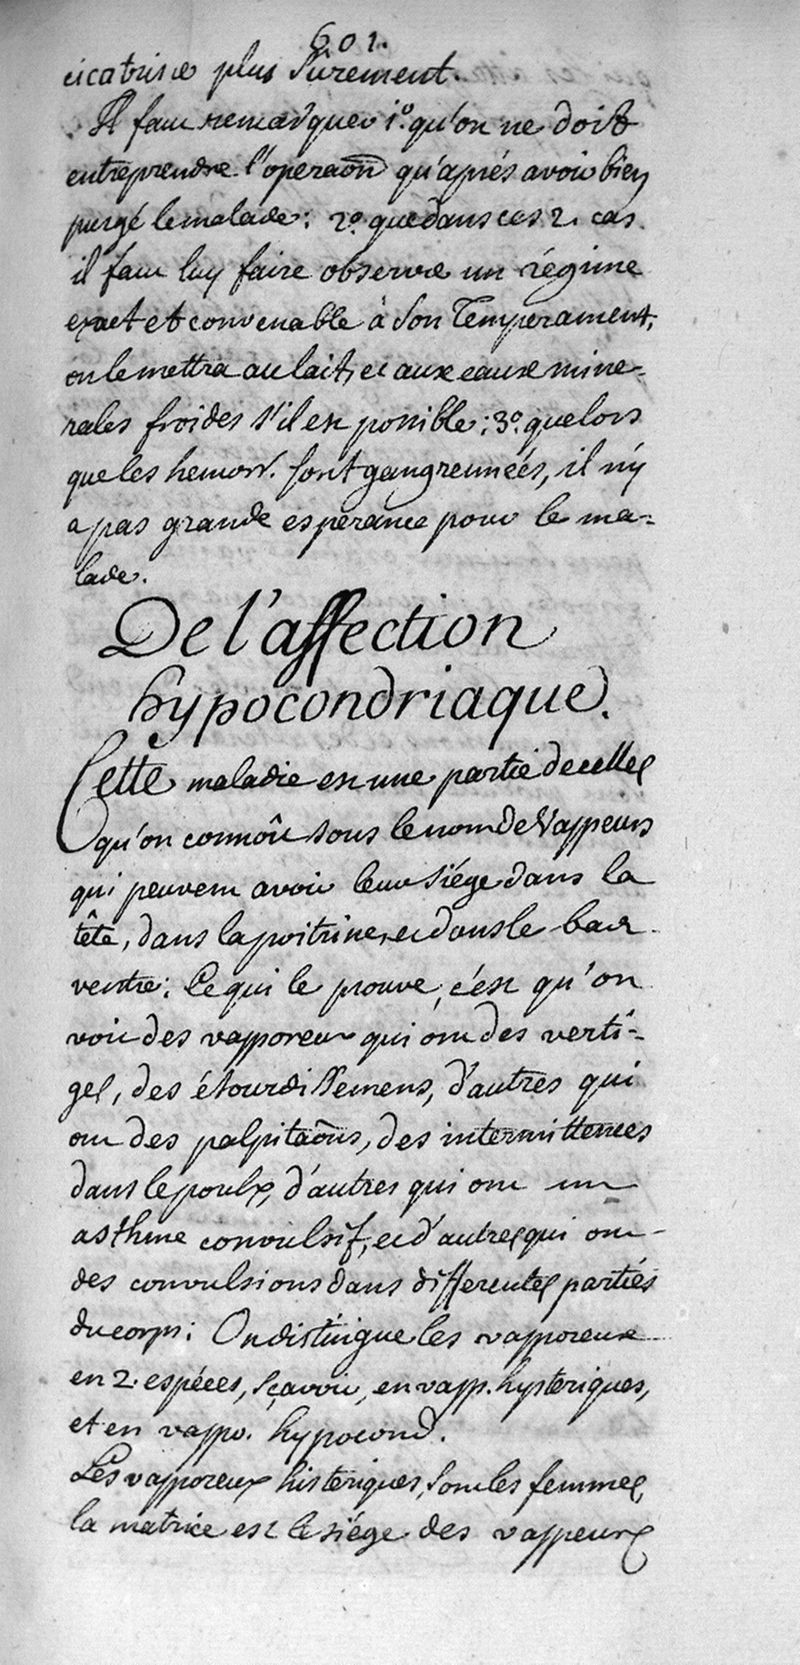 601.
cicatrise plus Surement.
Il faut remarquer 1.º qu'on ne doit
entreprendre l'operaõn qu'aprés avoir bien
purgé le malade: 2.º que dans ces 2. cas
il faut luy faire observer un régime
exact et convenable à Son Temperament,
on le mettra au lait, et aux eaux mine-
rales froides s'il est possible: 3.º que lors
que les hemorr. sont gangrennéés, il n'y
a pas grande esperance pour le ma=
lade.
De l'affection
hypocondriaque.
Cette maladie est une partie de celles
qu'on connoît sous le nom de Vappeurs
qui peuvent avoir leur siége dans la
tête, dans la poitrine, et dans le bas
ventre: Ce qui le prouve, c'est qu'on
voit des vapporeux qui ont des verti-
ges, des étourdissemens, d'autres qui
ont des palpitaõns, des intermittences
dans le poulx, d'autres qui ont un
asthme convulsif, et d'autres qui ont
des convulsions dans differentes parties
du corps: On distingue les vapporeux
en 2. espéces, sçavoir, en vapp. hysteriques,
et en vappo. hypocond.
Les vapporeux histeriques, sont les femmes,
la matrice est le siége des vappeurs